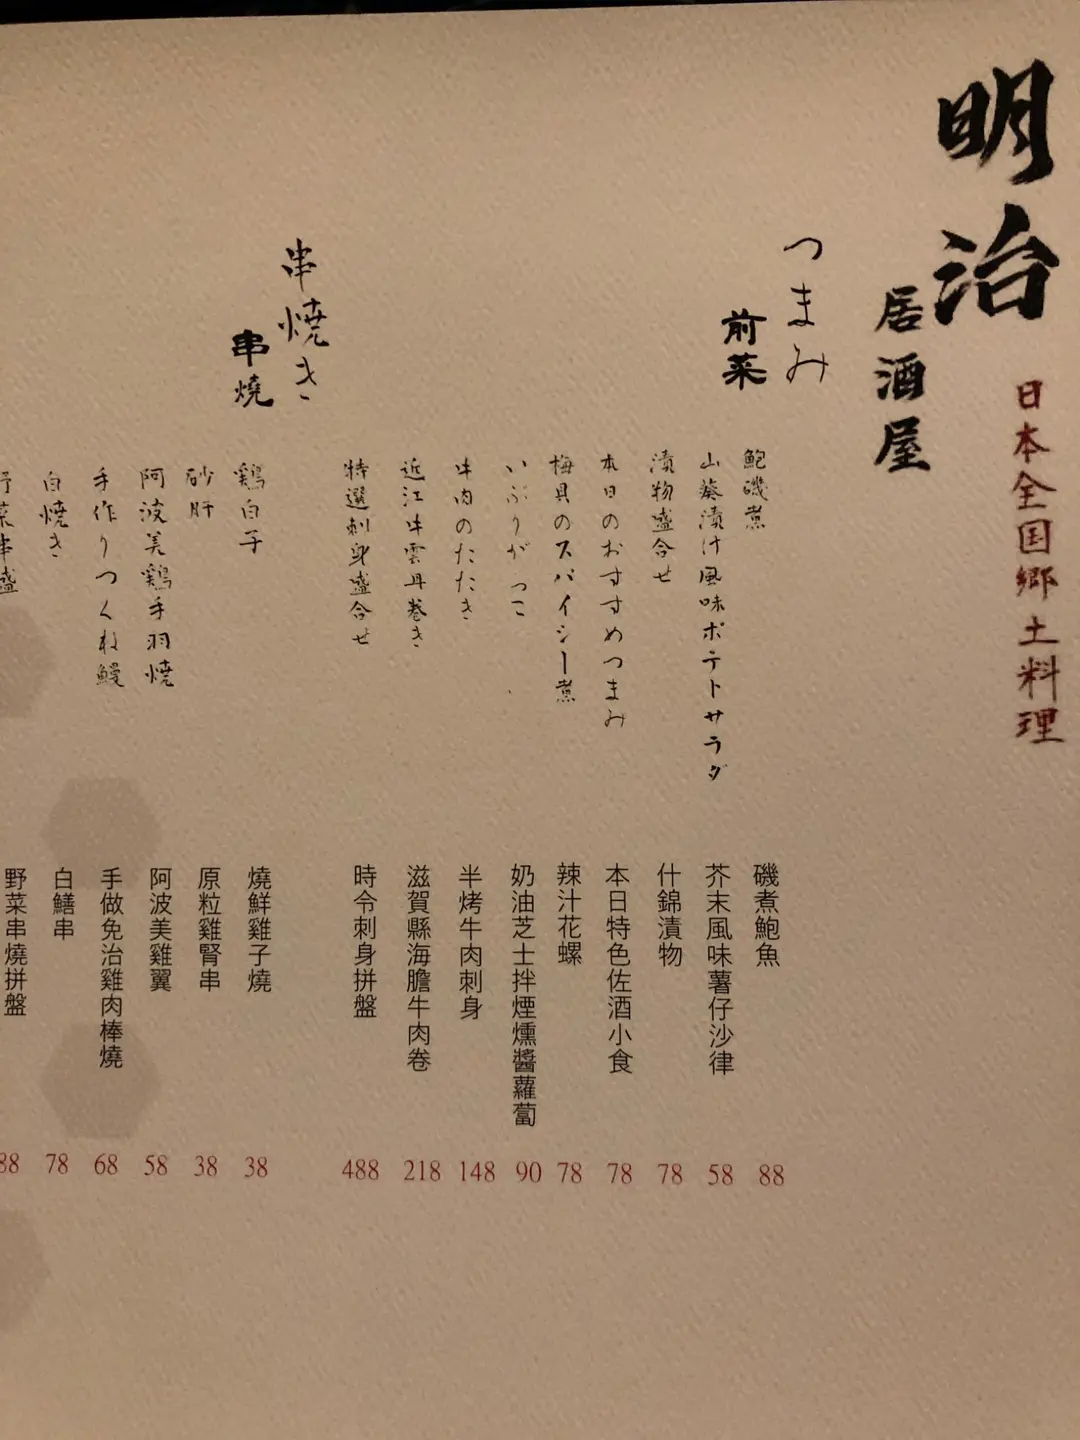 明治
居酒屋
日本全国郷土料理
つまみ
前菜
鮑磯煮
磯煮鮑魚
88
山葵漬け風味ポテトサラダ
芥末風味薯仔沙律
58
漬物盛合せ
什錦漬物
78
本日のおすすめつまみ
本日特色佐酒小食
78
梅貝のスパイシー煮
辣汁花螺
78
いぶりがっこ
奶油芝士拌煙燻醬蘿蔔
90
牛肉のたたき
半烤牛肉刺身
148
近江牛雲丹巻き
滋賀縣海膽牛肉卷
218
特選刺身盛合せ
時令刺身拼盤
488
串焼き
串燒
鶏白子
燒鮮雞子燒
38
砂肝
原粒雞腎串
38
阿波美鶏手羽焼
阿波美雞翼
58
手作りつくね鰻
手做免治雞肉棒燒
68
白焼き
白鱔串
78
野菜串盛
野菜串燒拼盤
88